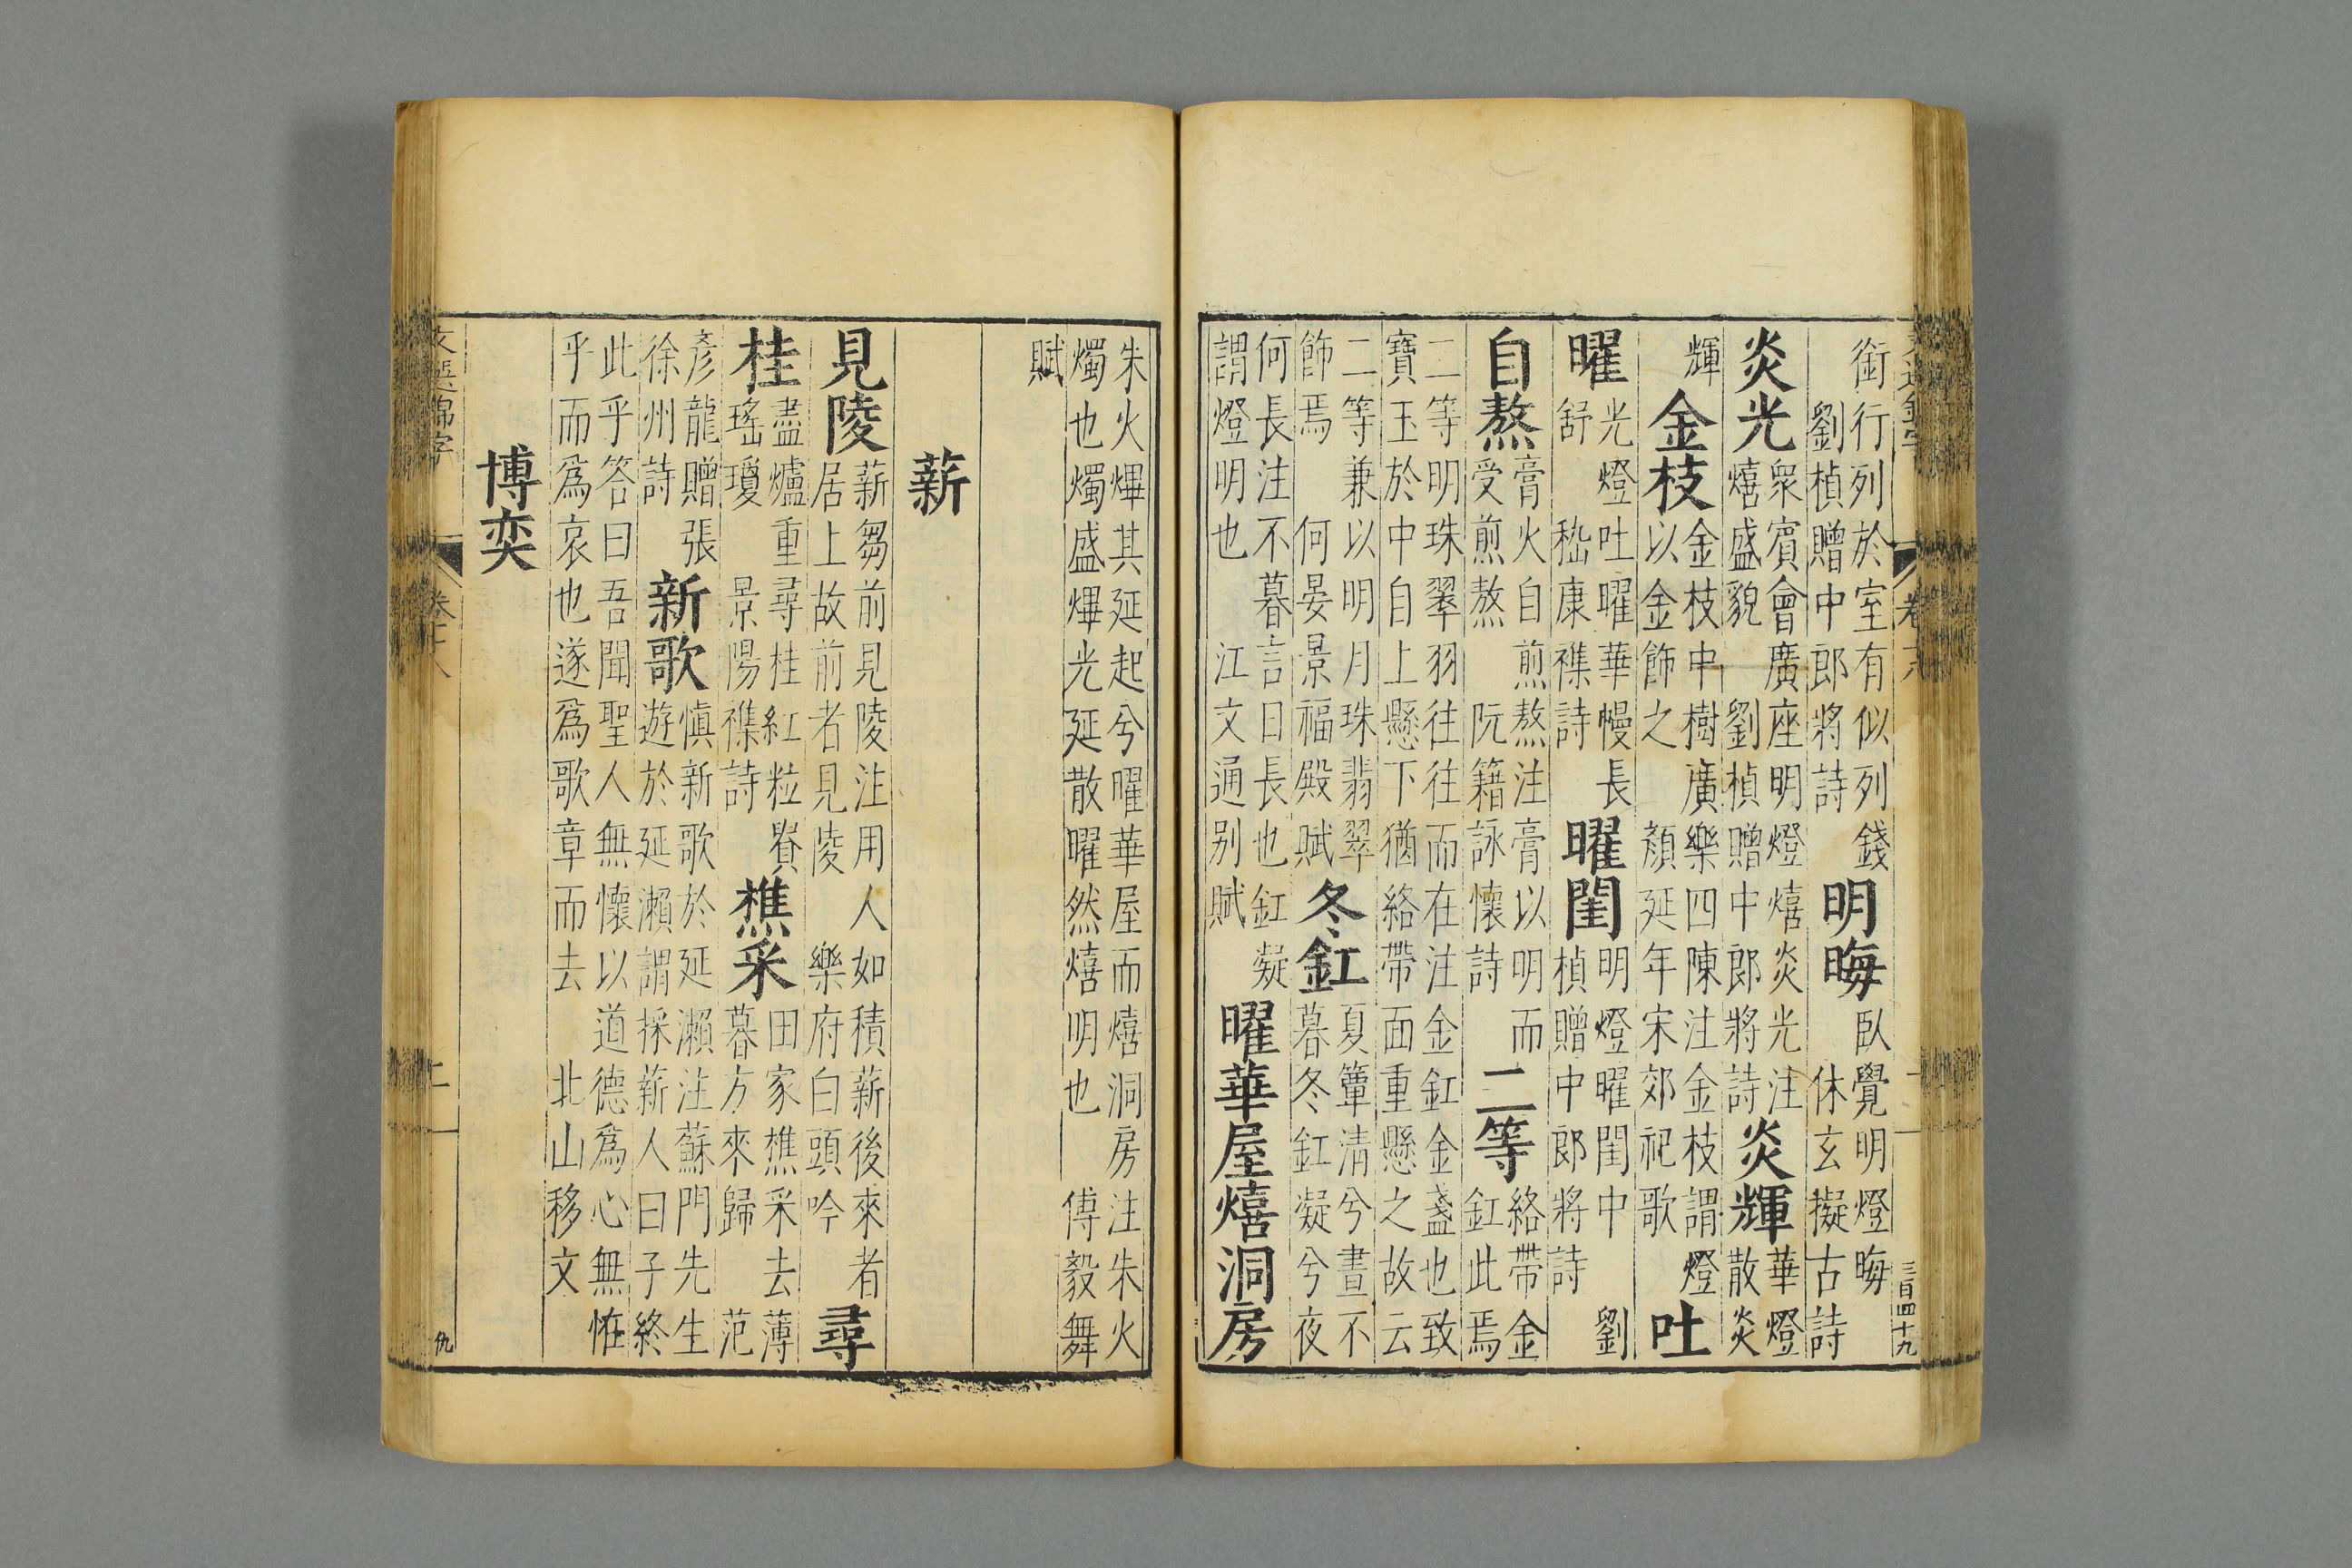 銜行列於室有似列錢劉楨贈中郎將詩明晦臥覺明燈晦休玄擬古詩
炎光衆賓會廣座明燈熺炎光注熺盛貌劉楨贈中郎將詩炎輝華燈散炎
輝金枝金枝中樹廣樂四陳注金枝謂燈以金飾之顏延年宋郊祀歌吐
曜光燈吐曜華幔長舒嵇康襍詩曜閨明燈曜閨中劉楨贈中郎將詩
自熬膏火自煎熬注膏以明而受煎熬阮籍詠懷詩二等絡帶金釭此焉
二等明珠翠羽往往而在注金釭金盞也致寶玉於中自上懸下猶絡帶面重懸之故云
二等兼以明月珠翡翠飾焉何晏景福殿賦冬釭夏簟清兮晝不暮冬釭凝兮夜
何長注不暮言日長也釭凝謂燈明也江文通别賦曜華屋熺洞房
三百四十九
朱火燁其延起兮曜華屋而熺洞房注朱火燭也燭盛燁光延散曜然熺明也傅毅舞
賦
薪
見陵薪芻前見陵注用人如積薪後來者居上故前者見陵樂府白頭吟尋
桂盡爐重尋桂紅粒貴瑤瓊景陽襍詩樵采田家樵采去薄暮方來歸范
彥龍贈張徐州詩新歌慎新歌於延瀨注蘇門先生遊於延瀨謂採薪人曰子終
此乎答曰吾聞聖人無懷以道德爲心無恠乎而爲哀也遂爲歌章而去北山移文
博奕
文選錦字
卷十八